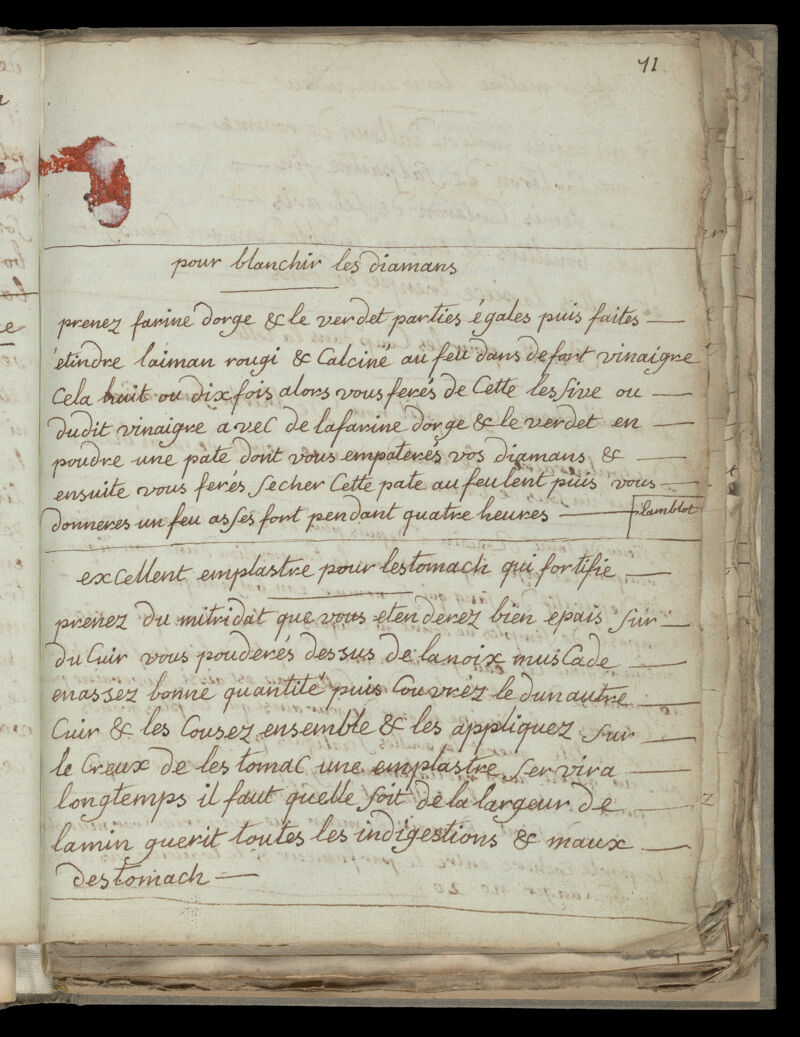 11
pour blanchir les diamans
prenez farine dorge & le verdet parties égales puis faites
étindre laiman rougi & Calciné au feu dans de fort vinaigre
Cela huit ou dix fois alors vous ferés de Cette lessive ou
dudit vinaigre avec de lafarine dorge & le verdet en
poudre une pate dont vous empaterés vos diamans &
ensuite vous ferés secher Cette pate au feu lent puis vous
donneres un feu asses fort pendant quatre heures
excellent emplastre pour lestomach qui fortifie
prenez du mitridat que vous etenderez bien epais sur
du Cuir vous pouderés dessus de lanoix musCade
enassez bonne quantité puis Couvréz le dun autre
Cuir & les Cousez ensemble & les appliquez sur
le Creux de lestomac une emplastre servira
longtemps il faut quelle soit de la largeur de
lamin guerit toutes les indigestions & maux
destomach